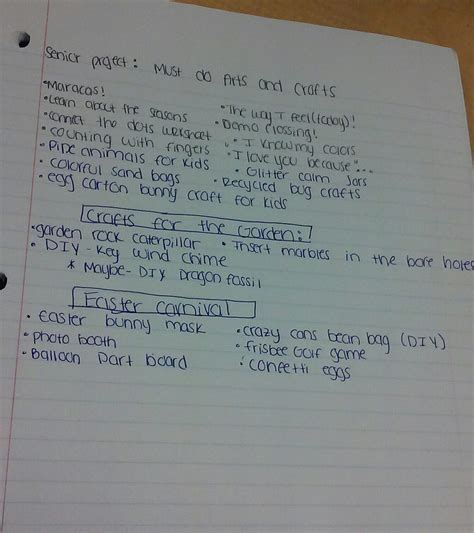 Senior project: Must do Arts and crafts
•Maracas!
•Learn about the seasons
•Connect the dots worksheet
•counting with fingers
•Pipe animals for kids
•colorful sand bags
•egg carton bunny craft for kids
•The way I feel (today)!
•Demo Clossing!
•"I know my colors
•"I love you because"...
•Glitter calm Jars
•Recycled bug crafts
Crafts for the Garden:
•garden rock caterpillar •Insert marbles in the bore holes
•DIY-Key wind chime
*Maybe-DIY Dragon fossil
Easter carnival
•easter bunny mask
•photo booth
•Balloon Dart board
•crazy cans bean bag (DIY)
•frisbee Golf game
•confetti eggs